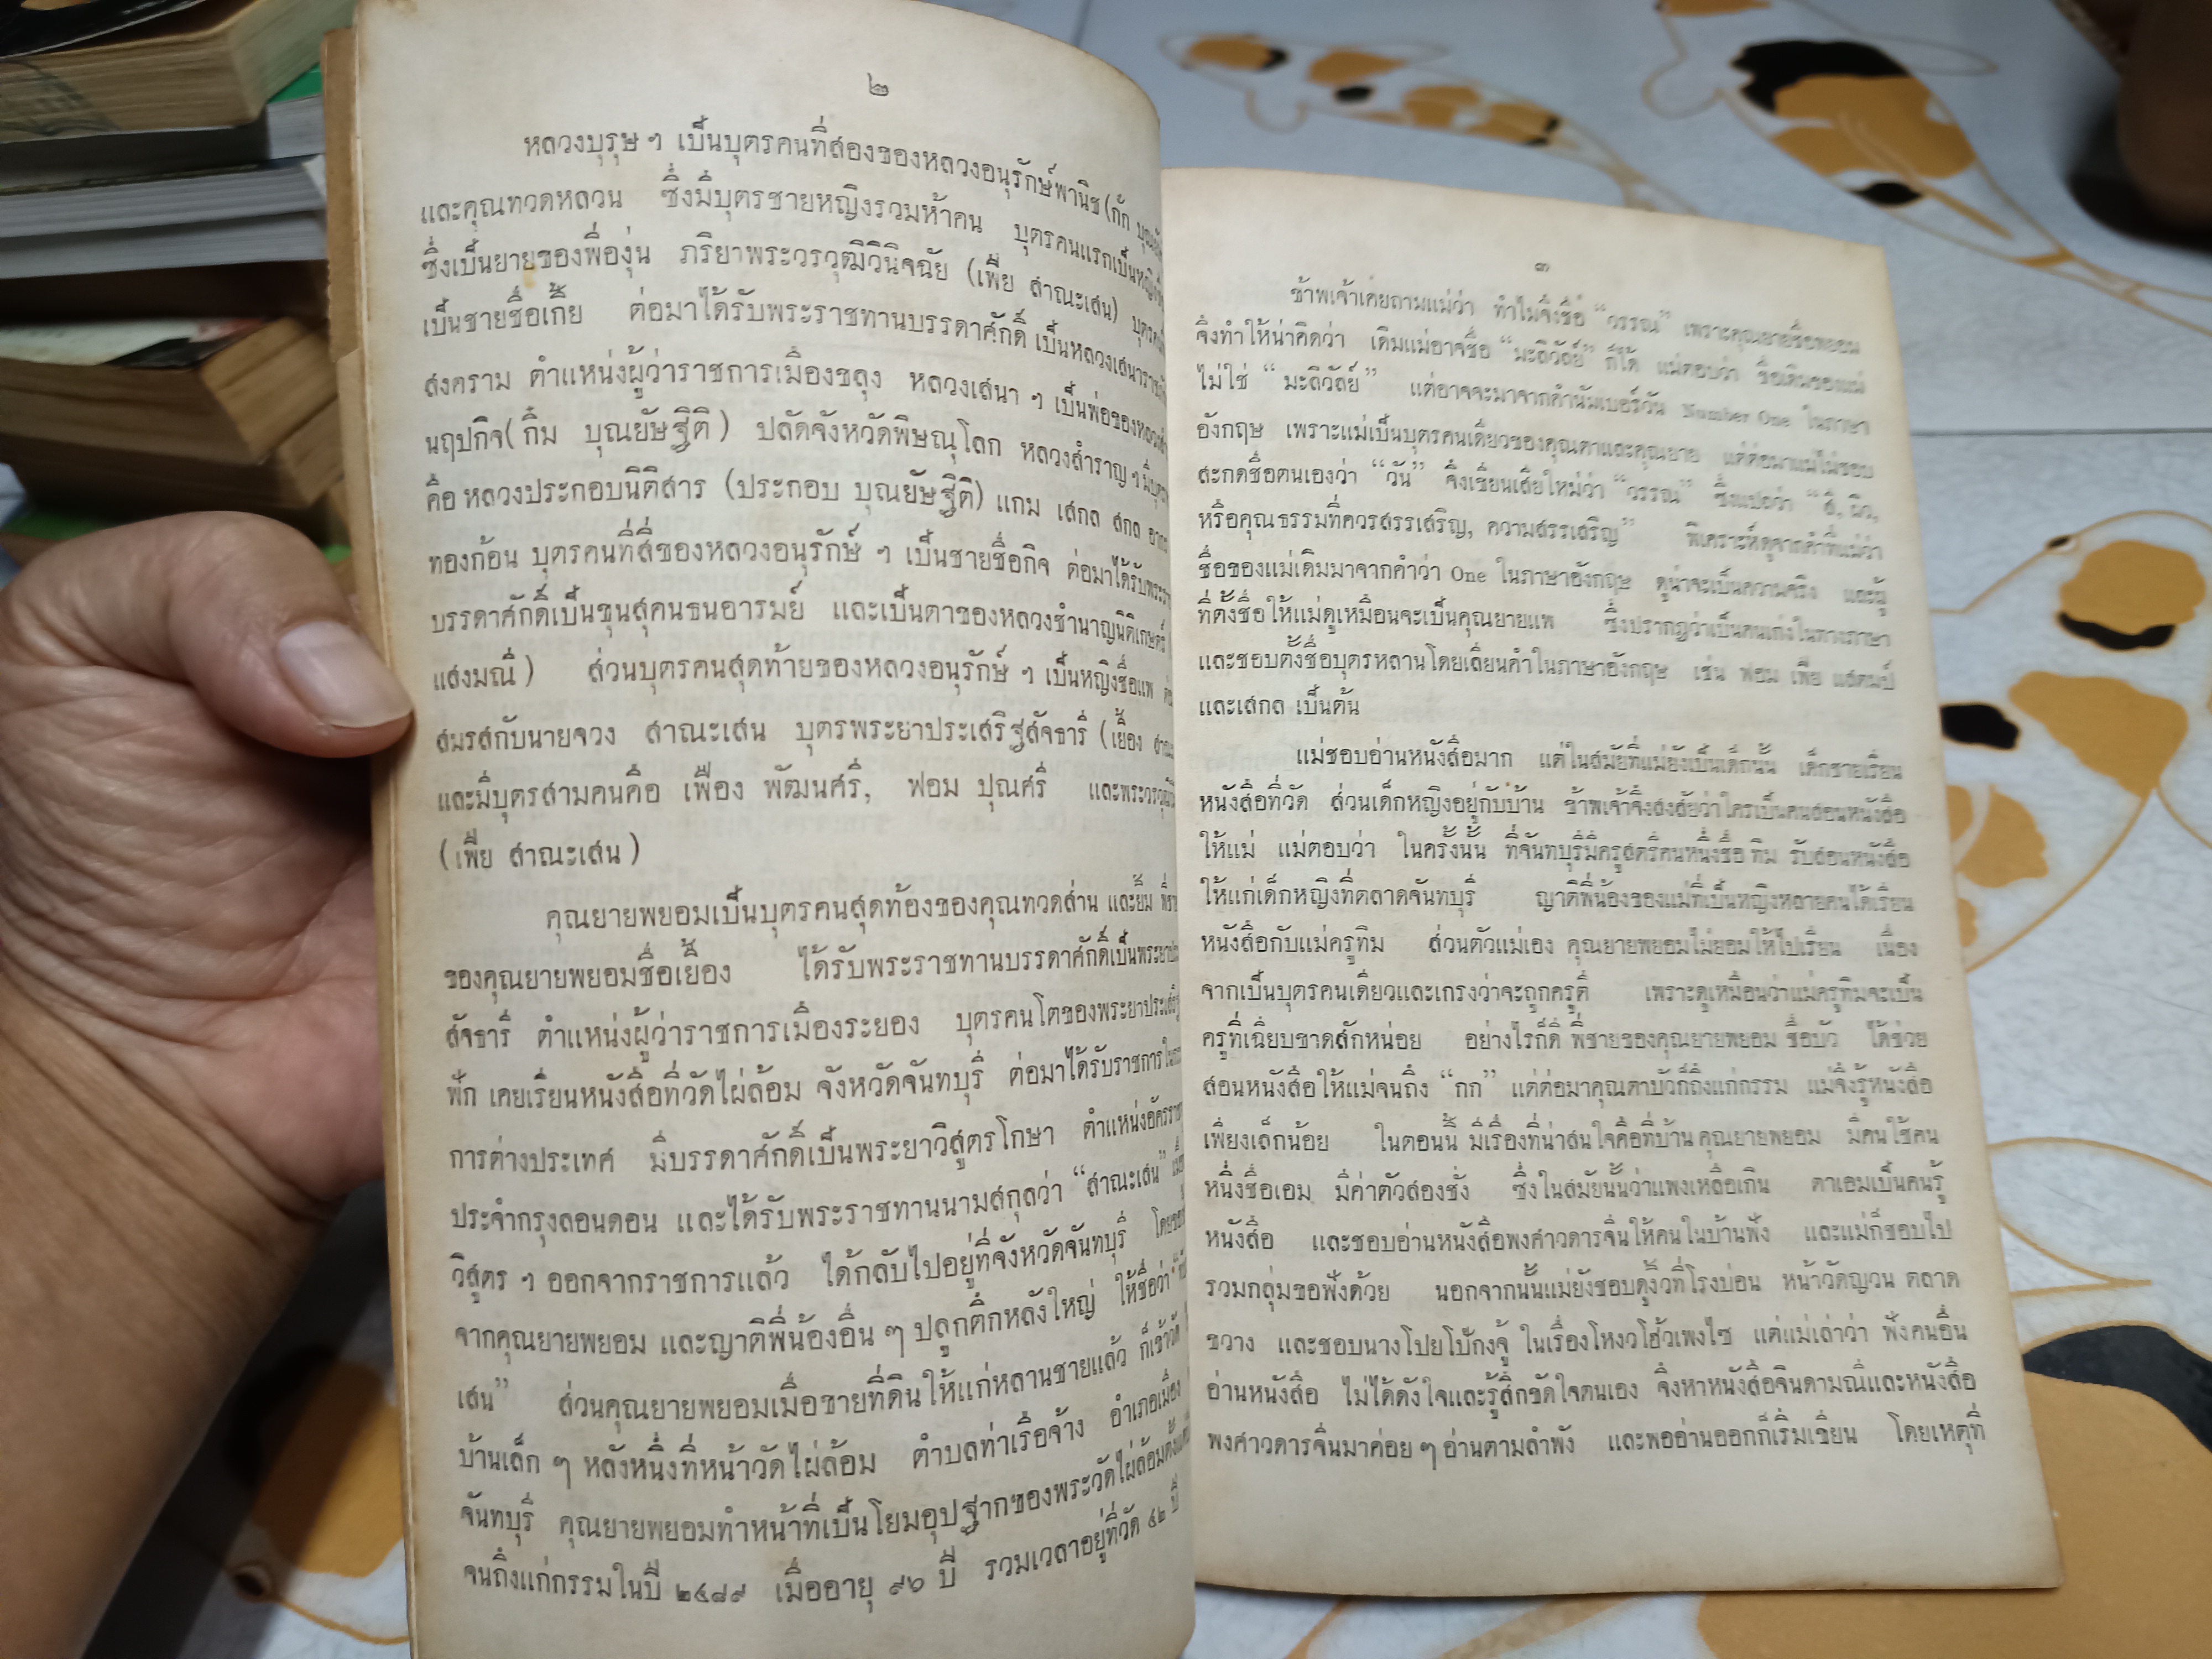 ๒
หลวงบุรุษ ฯ เป็นบุตรคนที่สองของหลวงอนุรักษ์พานิช (กัก
และคุณทวดหลวน ซึ่งมีบุตรชายหญิงรวมห้าคน บุตรคนแรกเป็นหญิงชื่อ
ซึ่งเป็นยายของพี่องุ่น ภริยาพระวรวุฒิวินิจฉัย (เพีย สาณะเสน)
เป็นชายชื่อเกี้ย ต่อมาได้รับพระราชทานบรรดาศักดิ์ เป็นหลวงเสนาราช
สงคราม ตำแหน่งผู้ว่าราชการเมืองขลุง หลวงเสนา ฯ เป็นพ่อของหลวงสำ
นฤปกิจ (กิ๋ม บุณยัษฐิติ) ปลัดจังหวัดพิษณุโลก หลวงสำราญ ฯ มีบุตร
คือ หลวงประกอบนิติสาร (ประกอบ บุณยัษฐิติ) แกม เสกล สกล
ทองก้อน บุตรคนที่สี่ของหลวงอนุรักษ์ ฯ เป็นชายชื่อกิจ ต่อมาได้รับพระรา
บรรดาศักดิ์เป็นขุนสุคนธนอารมย์ และเป็นตาของหลวงชำนาญนิติเกษตร์
แสงมณี) ส่วนบุตรคนสุดท้ายของหลวงอนุรักษ์ ฯ เป็นหญิงชื่อแพ
สมรสกับนายจวง สาณะเสน บุตรพระยาประเสริฐสัจธารี (เยื้อง
และมีบุตรสามคนคือ เฟือง พัฒนศรี, ฟอม ปุณศรี และพระวรวุฒิ
(เพีย สาณะเสน)
คุณยายพยอมเป็นบุตรคนสุดท้องของคุณทวดส่าน และยิ้ม
ของคุณยายพยอมชื่อเยื้อง ได้รับพระราชทานบรรดาศักดิ์เป็นพระยา
สัจธารี ตำแหน่งผู้ว่าราชการเมืองระยอง บุตรคนโตของพระยาประเสริฐ
ฟัก เคยเรียนหนังสือที่วัดไผ่ล้อม จังหวัดจันทบุรี ต่อมาได้รับราชการใน
การต่างประเทศ มีบรรดาศักดิ์เป็นพระยาวิสูตรโกษา ตำแหน่งอัครราช
ประจำกรุงลอนดอน และได้รับพระราชทานนามสกุลว่า “สาณะเสน”
วิสูตร ฯ ออกจากราชการแล้ว ได้กลับไปอยู่ที่จังหวัดจันทบุรี
จากคุณยายพยอม และญาติพี่น้องอื่น ๆ ปลูกตึกหลังใหญ่ ให้ชื่อว่า
เสน” ส่วนคุณยายพยอมเมื่อขายที่ดินให้แก่หลานชายแล้ว ก็เข้าวัด
บ้านเล็ก ๆ หลังหนึ่งที่หน้าวัดไผ่ล้อม ตำบลท่าเรือจ้าง อำเภอเมือง
จันทบุรี คุณยายพยอมทำหน้าที่เป็นโยมอุปฐากของพระวัดไผ่ล้อมตั้งแต่
จนถึงแก่กรรมในปี ๒๔๘๙ เมื่ออายุ ๙๖ ปี รวมเวลาอยู่ที่วัด ๔๒ ปี
๓
ข้าพเจ้าเคยถามแม่ว่า ทำไมจึงชื่อ “วรรณ” เพราะคุณยายชื่อพยอม
จึงทำให้น่าคิดว่า เดิมแม่อาจชื่อ “มะลิวัลย์” ก็ได้ แม่ตอบว่า ชื่อเดิมของแม่
ไม่ใช่ “มะลิวัลย์” แต่อาจจะมาจากคำนัมเบอร์วัน Number One ในภาษา
อังกฤษ เพราะแม่เป็นบุตรคนเดียวของคุณตาและคุณยาย แต่ต่อมาแม่ไม่ชอบ
สะกดชื่อตนเองว่า “วัน” จึงเขียนเสียใหม่ว่า “วรรณ” ซึ่งแปลว่า “สี, ผิว,
หรือคุณธรรมที่ควรสรรเสริญ, ความสรรเสริญ” พิเคราะห์ดูจากคำที่แม่ว่า
ชื่อของแม่เดิมมาจากคำว่า One ในภาษาอังกฤษ ดูน่าจะเป็นความจริง และผู้
ที่ตั้งชื่อให้แม่ดูเหมือนจะเป็นคุณยายแพ ซึ่งปรากฏว่าเป็นคนเก่งในทางภาษา
และชอบตั้งชื่อบุตรหลานโดยเลียนคำในภาษาอังกฤษ เช่น ฟอม เพีย แสตมป์
และเสกล เป็นต้น
แม่ชอบอ่านหนังสือมาก แต่ในสมัยที่แม่ยังเป็นเด็กนั้น เด็กชายเรียน
หนังสือที่วัด ส่วนเด็กหญิงอยู่กับบ้าน ข้าพเจ้าจึงสงสัยว่าใครเป็นคนสอนหนังสือ
ให้แม่ แม่ตอบว่า ในครั้งนั้น ที่จันทบุรีมีครูสตรีคนหนึ่งชื่อ ทิม รับสอนหนังสือ
ให้แก่เด็กหญิงที่ตลาดจันทบุรี ญาติพี่น้องของแม่ที่เป็นหญิงหลายคนได้เรียน
หนังสือกับแม่ครูทิม ส่วนตัวแม่เอง คุณยายพยอมไม่ยอมให้ไปเรียน เนื่อง
จากเป็นบุตรคนเดียวและเกรงว่าจะถูกครูตี เพราะดูเหมือนว่าแม่ครูทิมจะเป็น
ครูที่เฉียบขาดสักหน่อย อย่างไรก็ดี พี่ชายของคุณยายพยอม ชื่อบัว ได้ช่วย
สอนหนังสือให้แม่จนถึง “กก” แต่ต่อมาคุณตาบัวก็ถึงแก่กรรม แม่จึงรู้หนังสือ
เพียงเล็กน้อย ในตอนนี้ มีเรื่องที่น่าสนใจคือที่บ้านคุณยายพยอม มีคนใช้คน
หนึ่งชื่อเอม มีค่าตัวสองชั่ง ซึ่งในสมัยนั้นว่าแพงเหลือเกิน ตาเอมเป็นคนรู้
หนังสือ และชอบอ่านหนังสือพงศาวดารจีนให้คนในบ้านฟัง และแม่ก็ชอบไป
รวมกลุ่มขอฟังด้วย นอกจากนั้นแม่ยังชอบดูงิ้วที่โรงบ่อน หน้าวัดญวน ตลาด
ขวาง และชอบนางโปยโป๊กงจู้ ในเรื่องโหงวโฮ้วเพงไซ แต่แม่เล่าว่า ฟังคนอื่น
อ่านหนังสือ ไม่ได้ดังใจและรู้สึกขัดใจตนเอง จึงหาหนังสือจินดามณีและหนังสือ
พงศาวดารจีนมาค่อย ๆ อ่านตามลำพัง และพออ่านออกก็เริ่มเขียน โดยเหตุที่